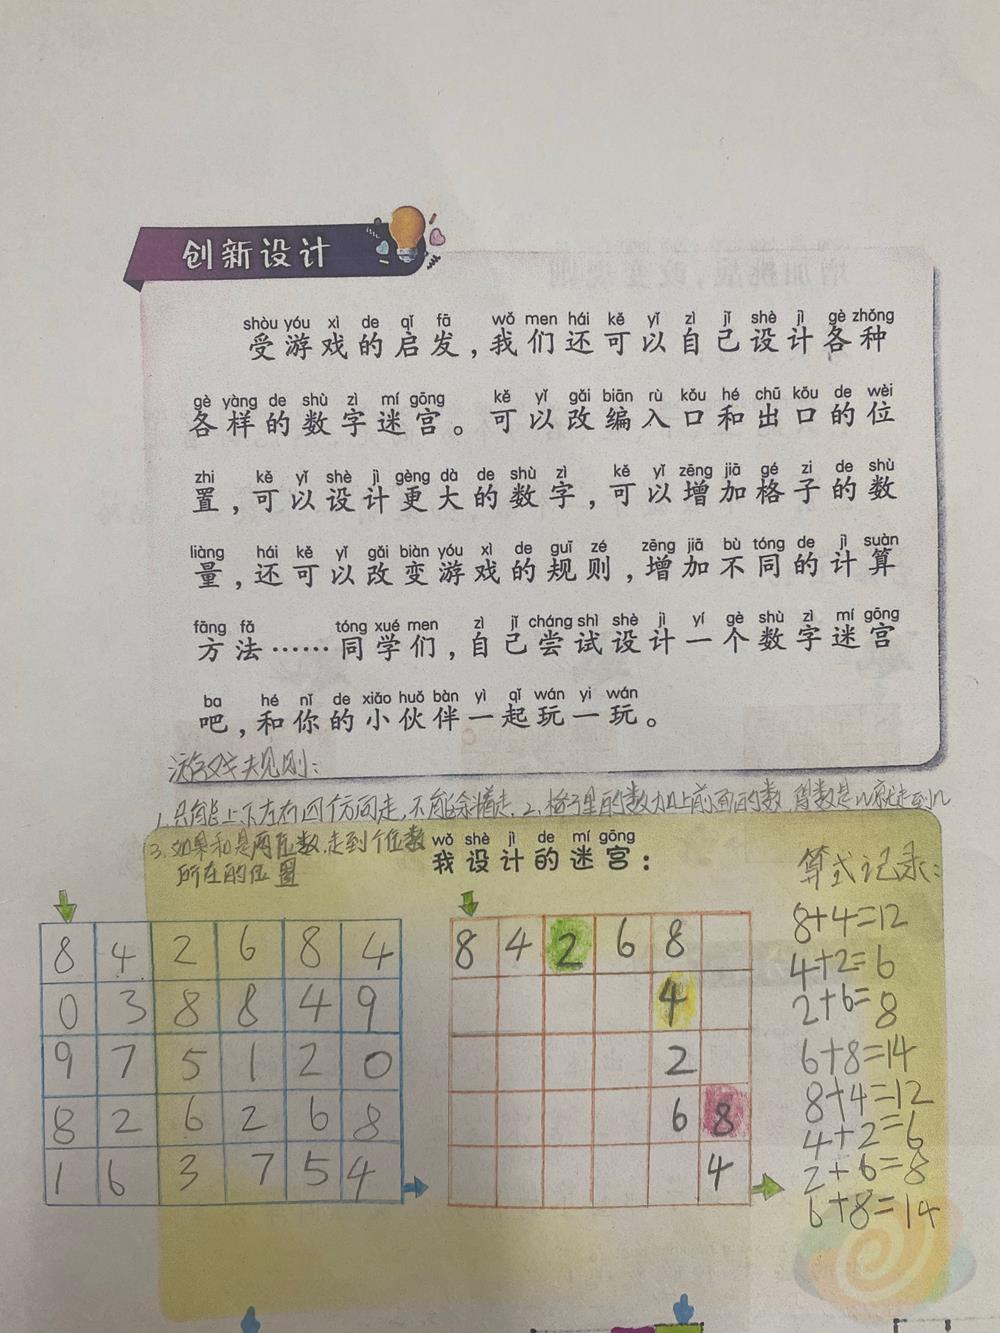 创新设计
shòu yóu xì de qǐ fā wǒ men hái kě yǐ zì jǐ shè jì gè zhǒng
受游戏的启发，我们还可以自己设计各种
gè yàng de shù zì mí gōng kě yǐ gǎi biān rù kǒu hé chū kǒu de wèi
各样的数字迷宫。可以改编入口和出口的位
zhi kě yǐ shè jì gèng dà de shù zì kě yǐ zēng jiā gé zi de shù
置，可以设计更大的数字，可以增加格子的数
liàng hái kě yǐ gǎi biàn yóu xì de guī zé zēng jiā bù tóng de jì suàn
量，还可以改变游戏的规则，增加不同的计算
fāng fǎ tóng xué men zì jǐ cháng shì shè jì yí gè shù zì mí gōng
方法……同学们，自己尝试设计一个数字迷宫
ba hé nǐ de xiǎo huǒ bàn yì qǐ wán yi wán
吧，和你的小伙伴一起玩一玩。
游戏规则：
1.只能上下左右四个方向走，不能斜着走.2.格子里的数加上前面的数 得数是几就走到几
3.如果和是两位数，走到个位数
所在的位置
wǒ shè jì de mí gōng
我设计的迷宫：
8 4 2 6 8 4
0 3 8 8 4 9
9 7 5 1 2 0
8 2 6 2 6 8
1 6 3 7 5 4
8 4 2 6 8
4
2
6 8
4
算式记录：
8+4=12
4+2=6
2+6=8
6+8=14
8+4=12
4+2=6
2+6=8
6+8=14